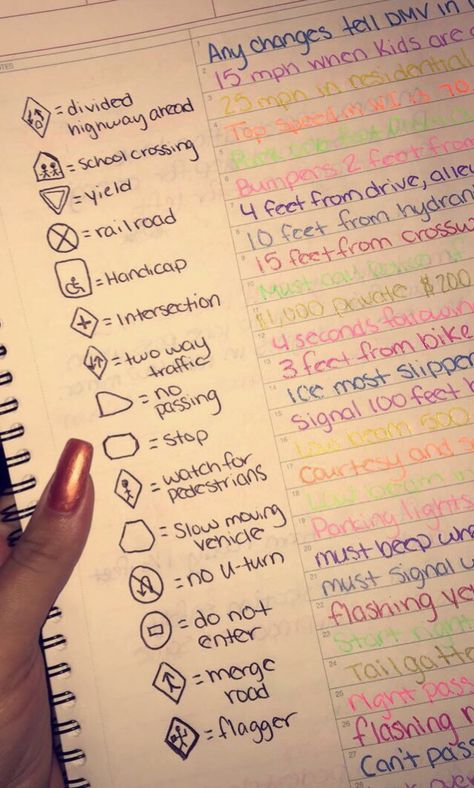 NOTES
= divided
highway ahead
= school crossing
= yield
= railroad
= Handicap
= Intersection
= two way
traffic
= no
passing
= stop
= watch for
pedestrians
= slow moving
vehicle
= no U-turn
= do not
enter
= merge
road
= flagger
1 Any changes tell DMV in
2 15 mph when kids are
3 25 mph in residential
4 Top speed in
Bumpers 2 feet from
4 feet from drive, alley
10 feet from hydrant
15 feet from
Must
$1,000 private $200
12 4 seconds following
13 3 feet from bike
14 Ice most slipper
15 Signal 100 feet
16 Low beam 500
17 Courtesy and
18 Low beam in
19 Parking lights
20 must beep
21 must signal
22 flashing
23 Start right
24 Tailgatte
25 right pass
26 flashing
27 Can't pass